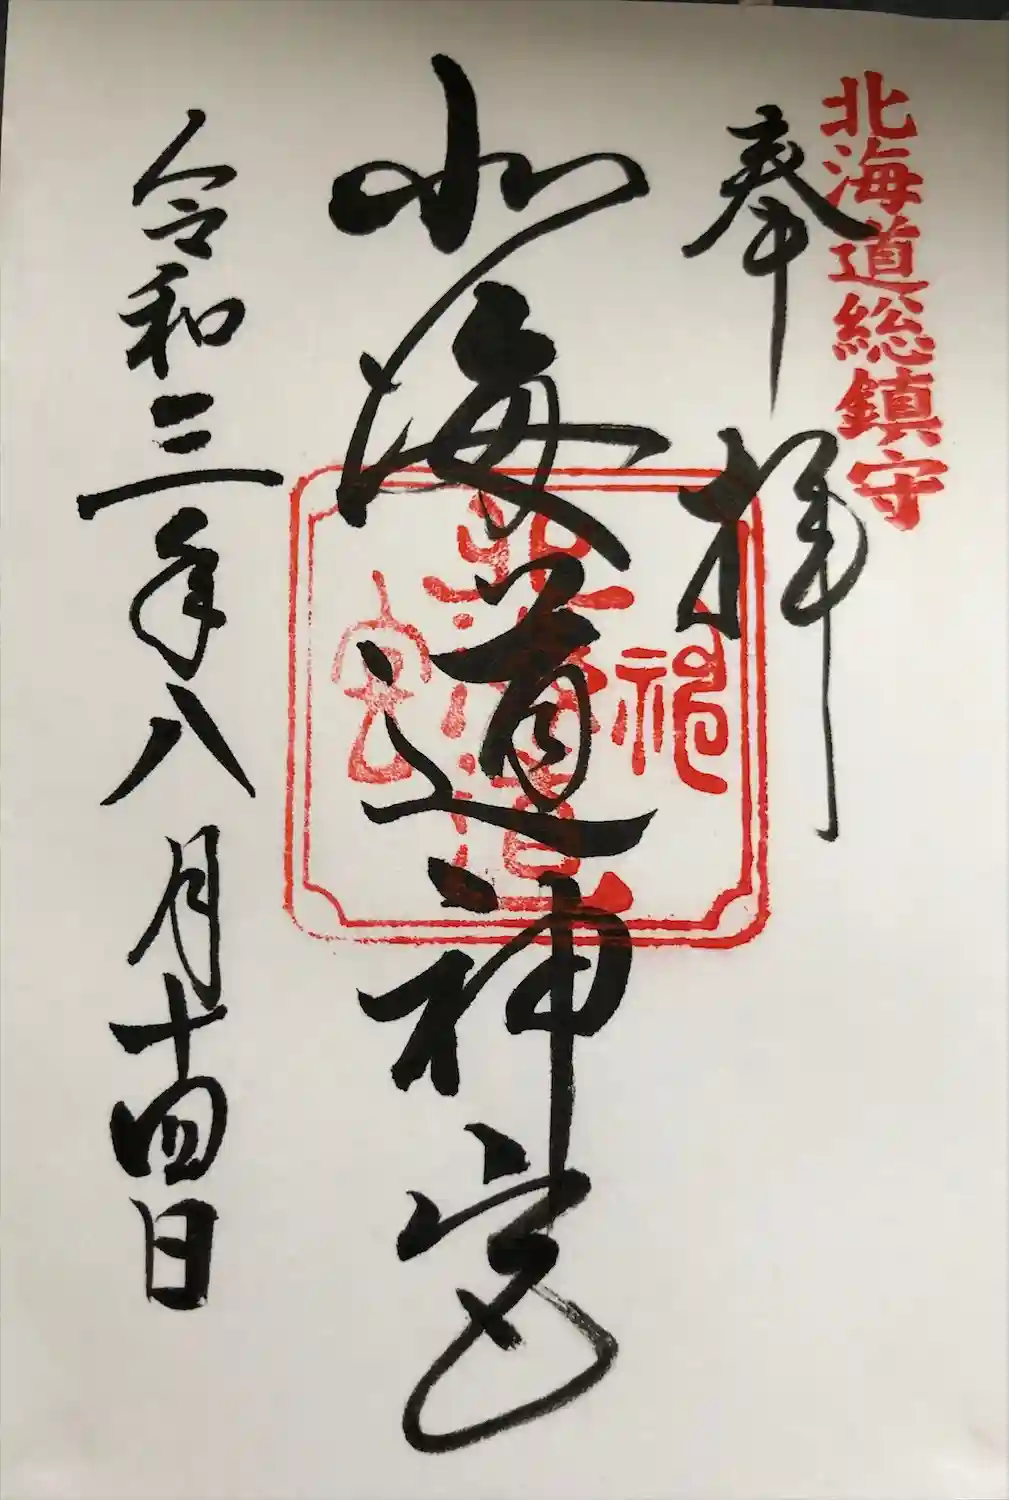 北海道総鎮守
奉拝
北海道神宮
神
北海道
宮
令和三年八月十四日